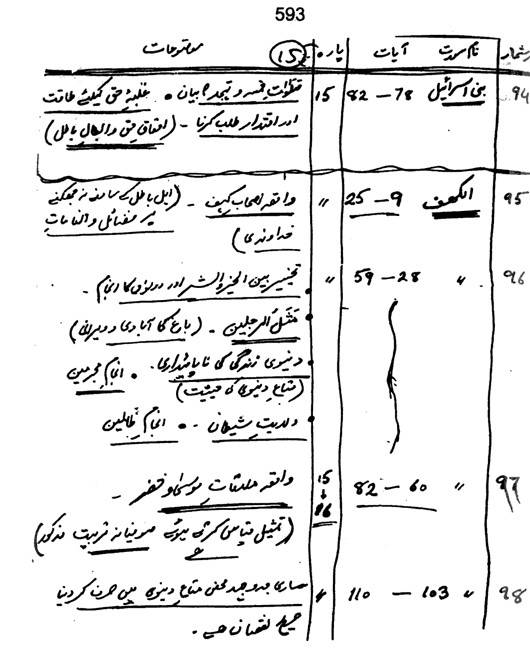 593
شمار نام سورت آیات پارہ (15) موضوعات
94 بنی اسرائیل 78 – 82 15 و تہجد کا بیان • غلبۂ حق کیلئے طاقت
اور اقتدار طلب کرنا – (احقاقِ حق و ابطالِ باطل)
95 الکہف 9 – 25 〃 واقعہ اصحابِ کہف – (اہلِ باطل کے سامنے نہ جھکنے
پر فضائل و انعاماتِ
خداوندی)
96 〃 28 – 59 〃 تخییر بین الخیر والشر اور دونوں کا انجام –
• تمثیل الرجلین – (باغ کا آبادی و ویرانی)
• دنیوی زندگی کی ناپائیداری • انجامِ مجرمین
(متاعِ دنیوی کی حیثیت)
• ولدیتِ شیطان – • انجامِ ظالمین
97 〃 60 – 82 15 ↓ 16 واقعہ ملاقاتِ موسیٰ و خضر –
(تمثیل کرتے ہوئے صوفیانہ تربیت مذکور)
98 〃 103 – 110 〃 ساری جدوجہد محض متاعِ دنیوی میں صرف کردینا
نقصان ہے –